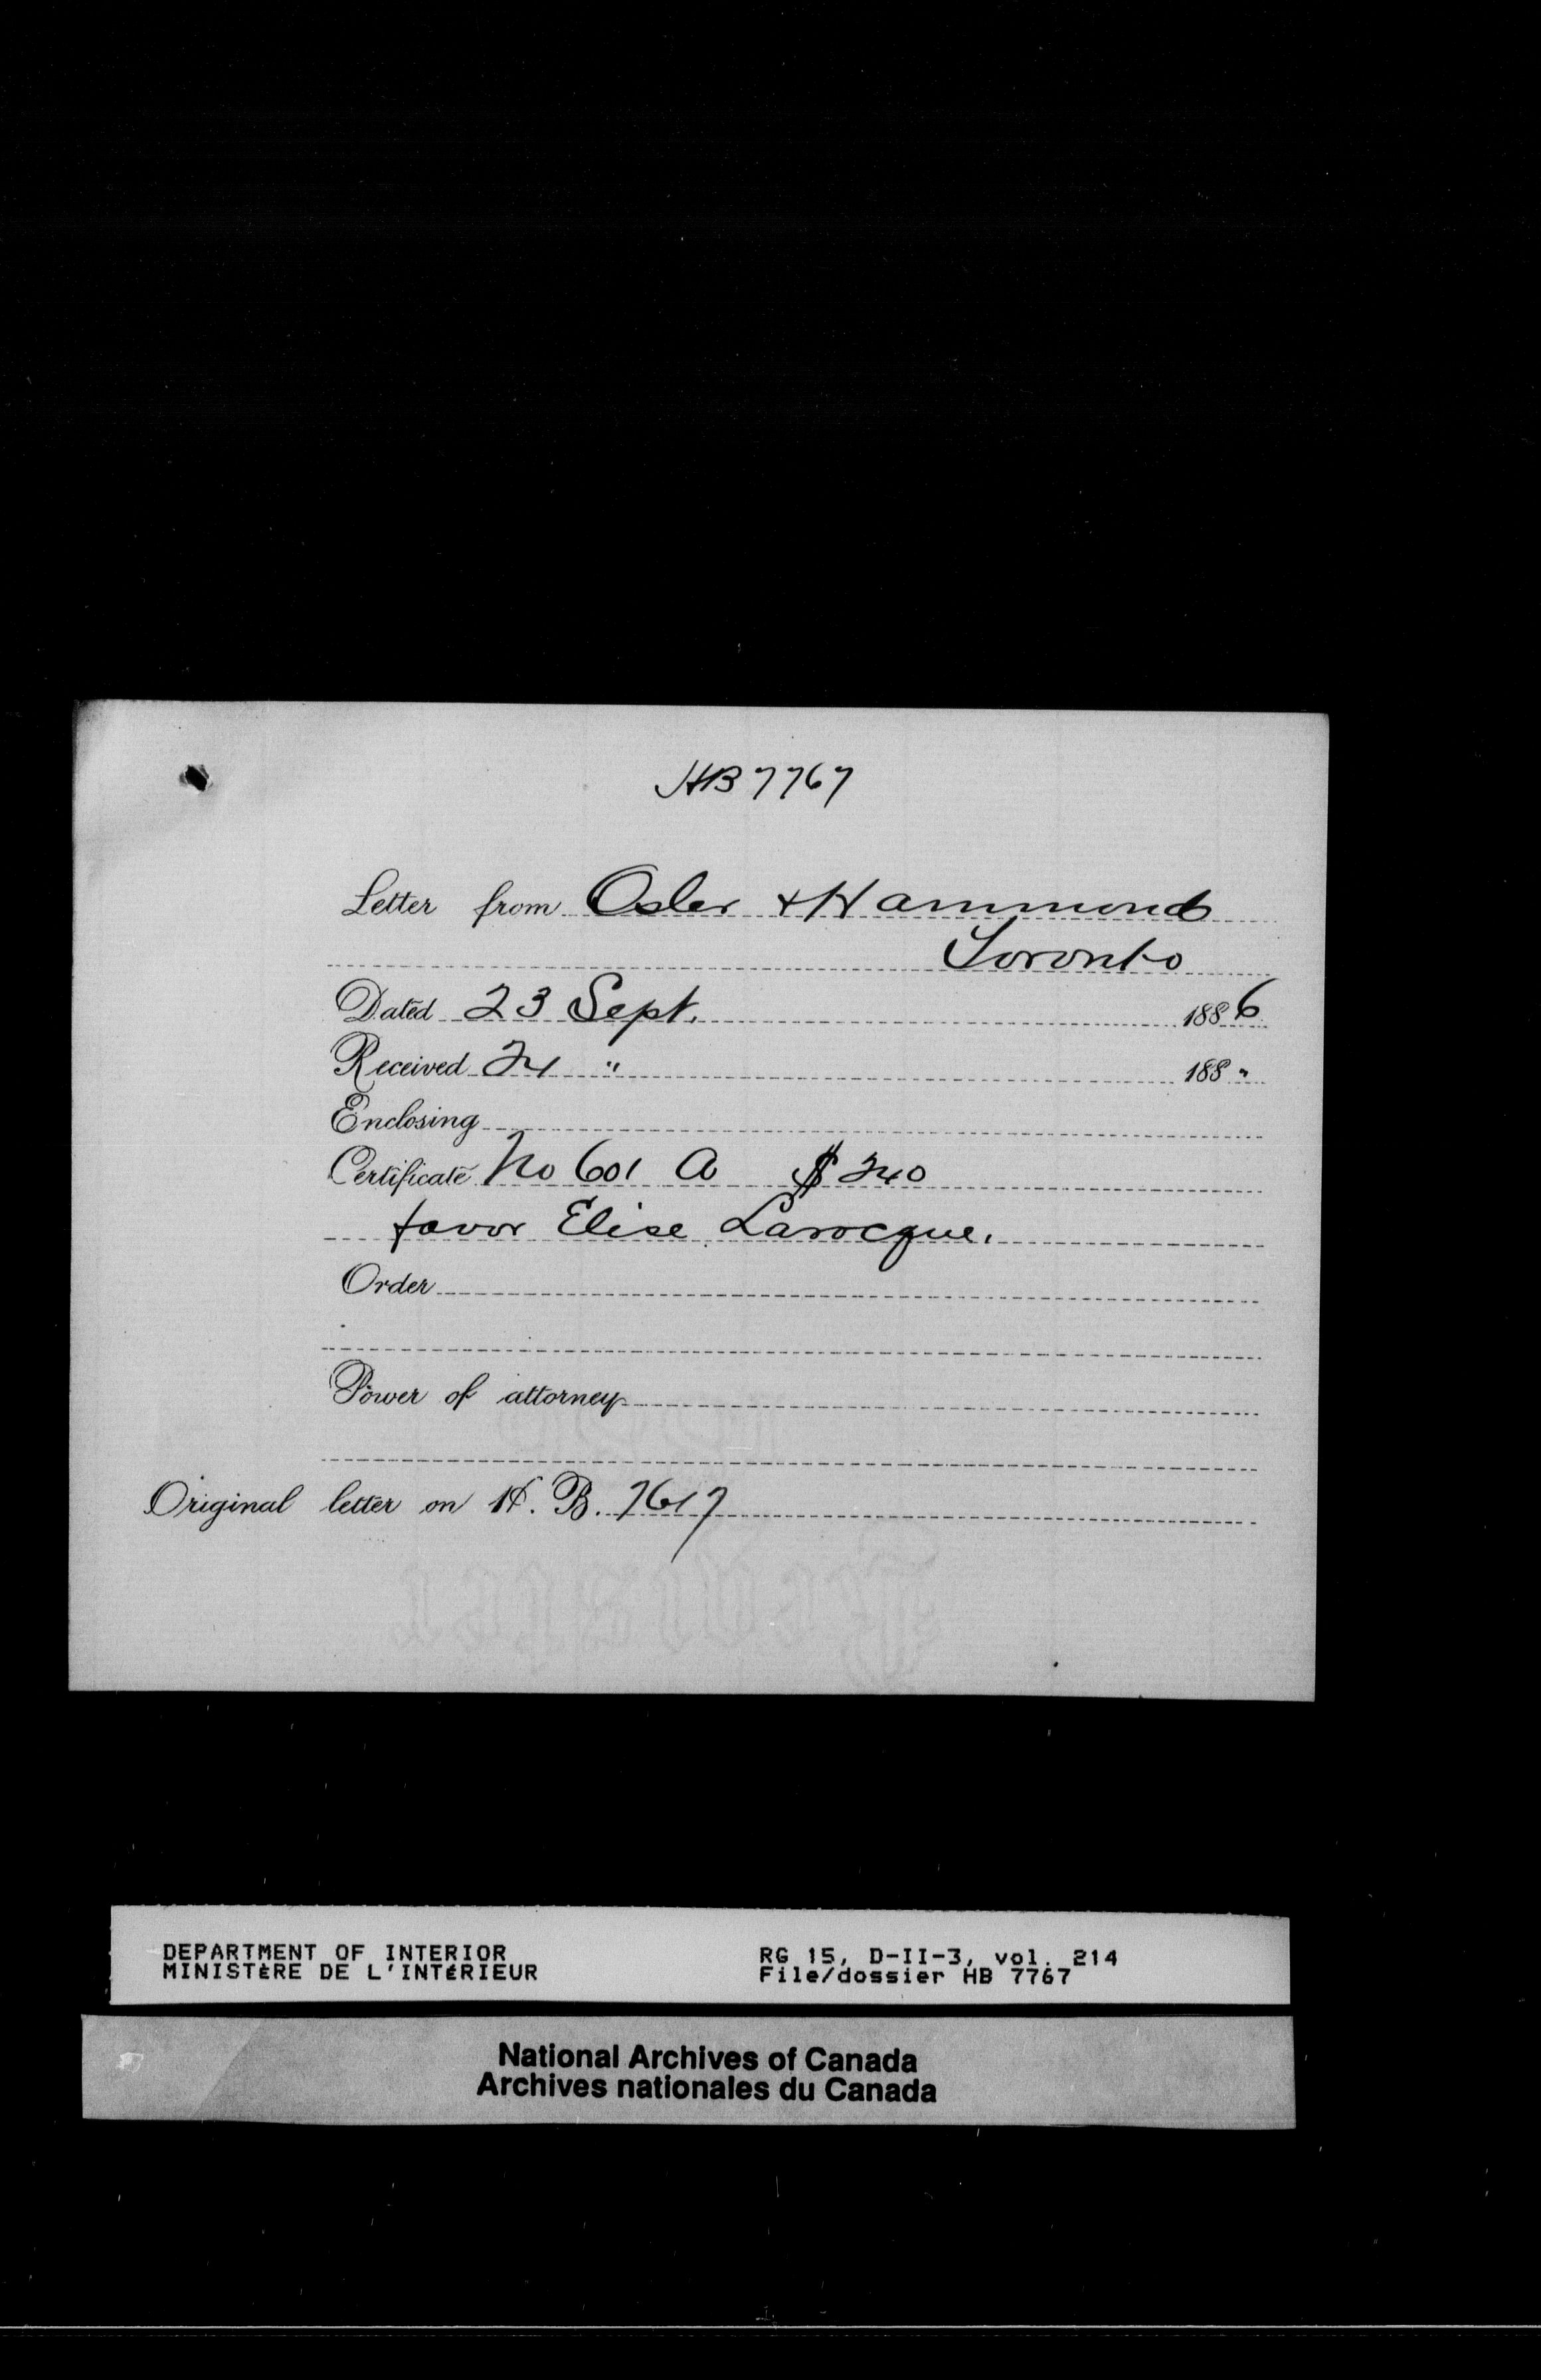 HB 7767
Letter from Osler & Hammond
Toronto
Dated 23 Sept. 1886
Received 24 " 188"
Enclosing
Certificate No 601 A $240
favor Elise Larocque.
Order
Power of attorney
Original letter on H. B. 7617
DEPARTMENT OF INTERIOR
MINISTÈRE DE L'INTÉRIEUR
RG 15, D-II-3, vol. 214
File/dossier HB 7767
National Archives of Canada
Archives nationales du Canada